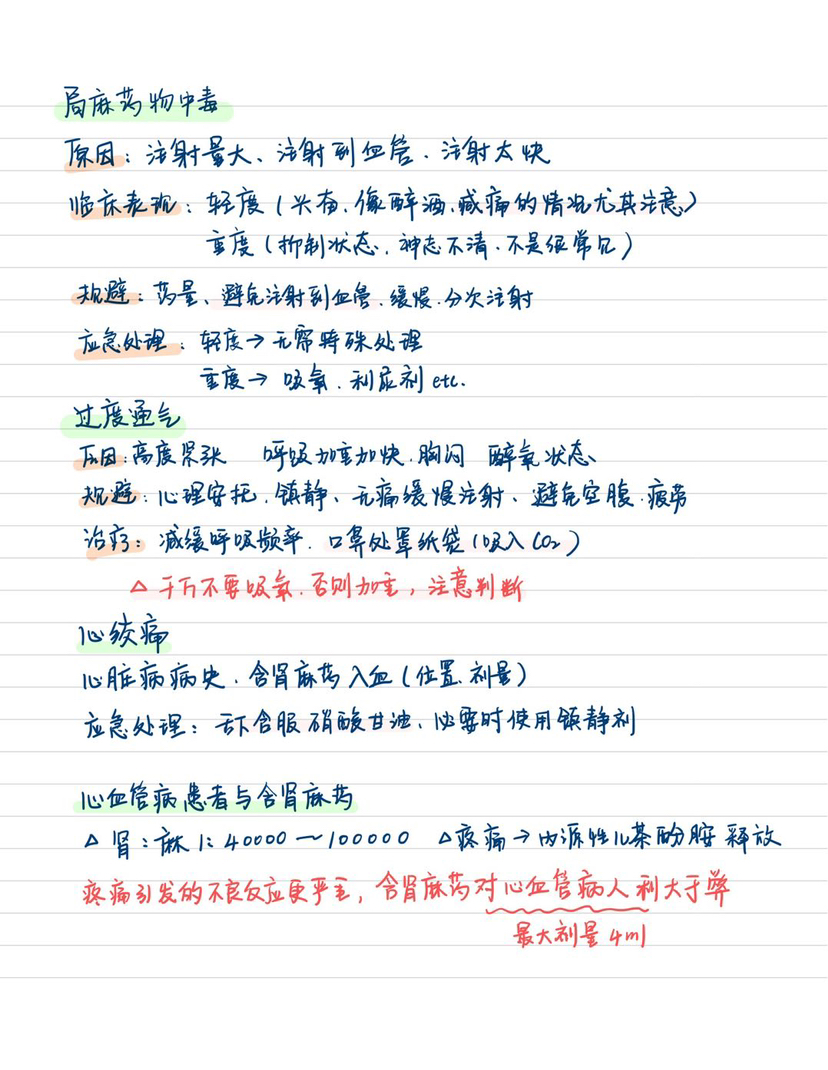 局麻药物中毒
原因：注射量大、注射到血管、注射太快
临床表现：轻度（兴奋、像醉酒、减痛的情况尤其注意）
重度（抑制状态、神志不清、不是很常见）
规避：药量、避免注射到血管、缓慢、分次注射
应急处理：轻度→无需特殊处理
重度→吸氧、利尿剂 etc.
过度通气
原因：高度紧张 呼吸加重加快、胸闷 醉氧状态
规避：心理安抚、镇静、无痛缓慢注射、避免空腹、疲劳
治疗：减缓呼吸频率、口鼻处罩纸袋（吸入CO₂）
△ 千万不要吸氧、否则加重，注意判断
心绞痛
心脏病病史、含肾麻药入血（位置、剂量）
应急处理：舌下含服硝酸甘油、必要时使用镇静剂
心血管病患者与含肾麻药
△ 肾：麻 1：40000～100000 △疼痛→内源性儿茶酚胺释放
疼痛引发的不良反应更严重，含肾麻药对心血管病人利大于弊
最大剂量 4ml